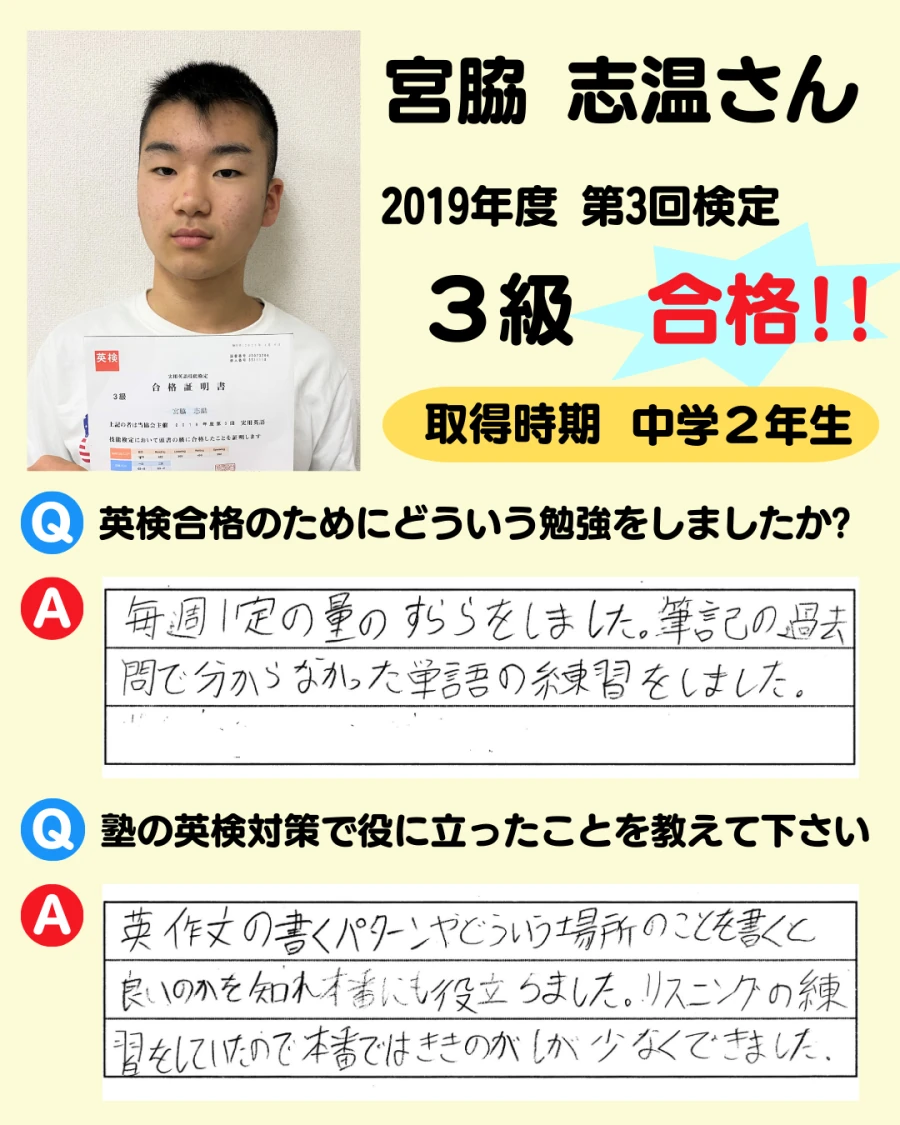 宮脇 志温さん
2019年度 第3回検定
3級 合格!!
英検
実用英語技能検定
合格証明書
3級
宮脇 志温
上記の者は当協会主催 2019年度第3回 実用英語
技能検定において頭書の級に合格したことを証明します
取得時期 中学2年生
Q 英検合格のためにどういう勉強をしましたか?
A 毎週1定の量のすららをしました。筆記の過去
問で分からなかった単語の練習をしました。
Q 塾の英検対策で役に立ったことを教えて下さい
A 英作文の書くパターンやどういう場所のことを書くと
良いのかを知れ本番にも役立ちました。リスニングの練
習をしていたので本番ではききのがしが少なくできました.